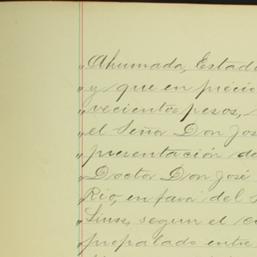 "Ahumada, Estado
"y que en precio
"vecientos pesos,
"el Señor Don José
"presentación de
"Doctor Don José
"Rio, en favor del
"segun el
"propalado entre